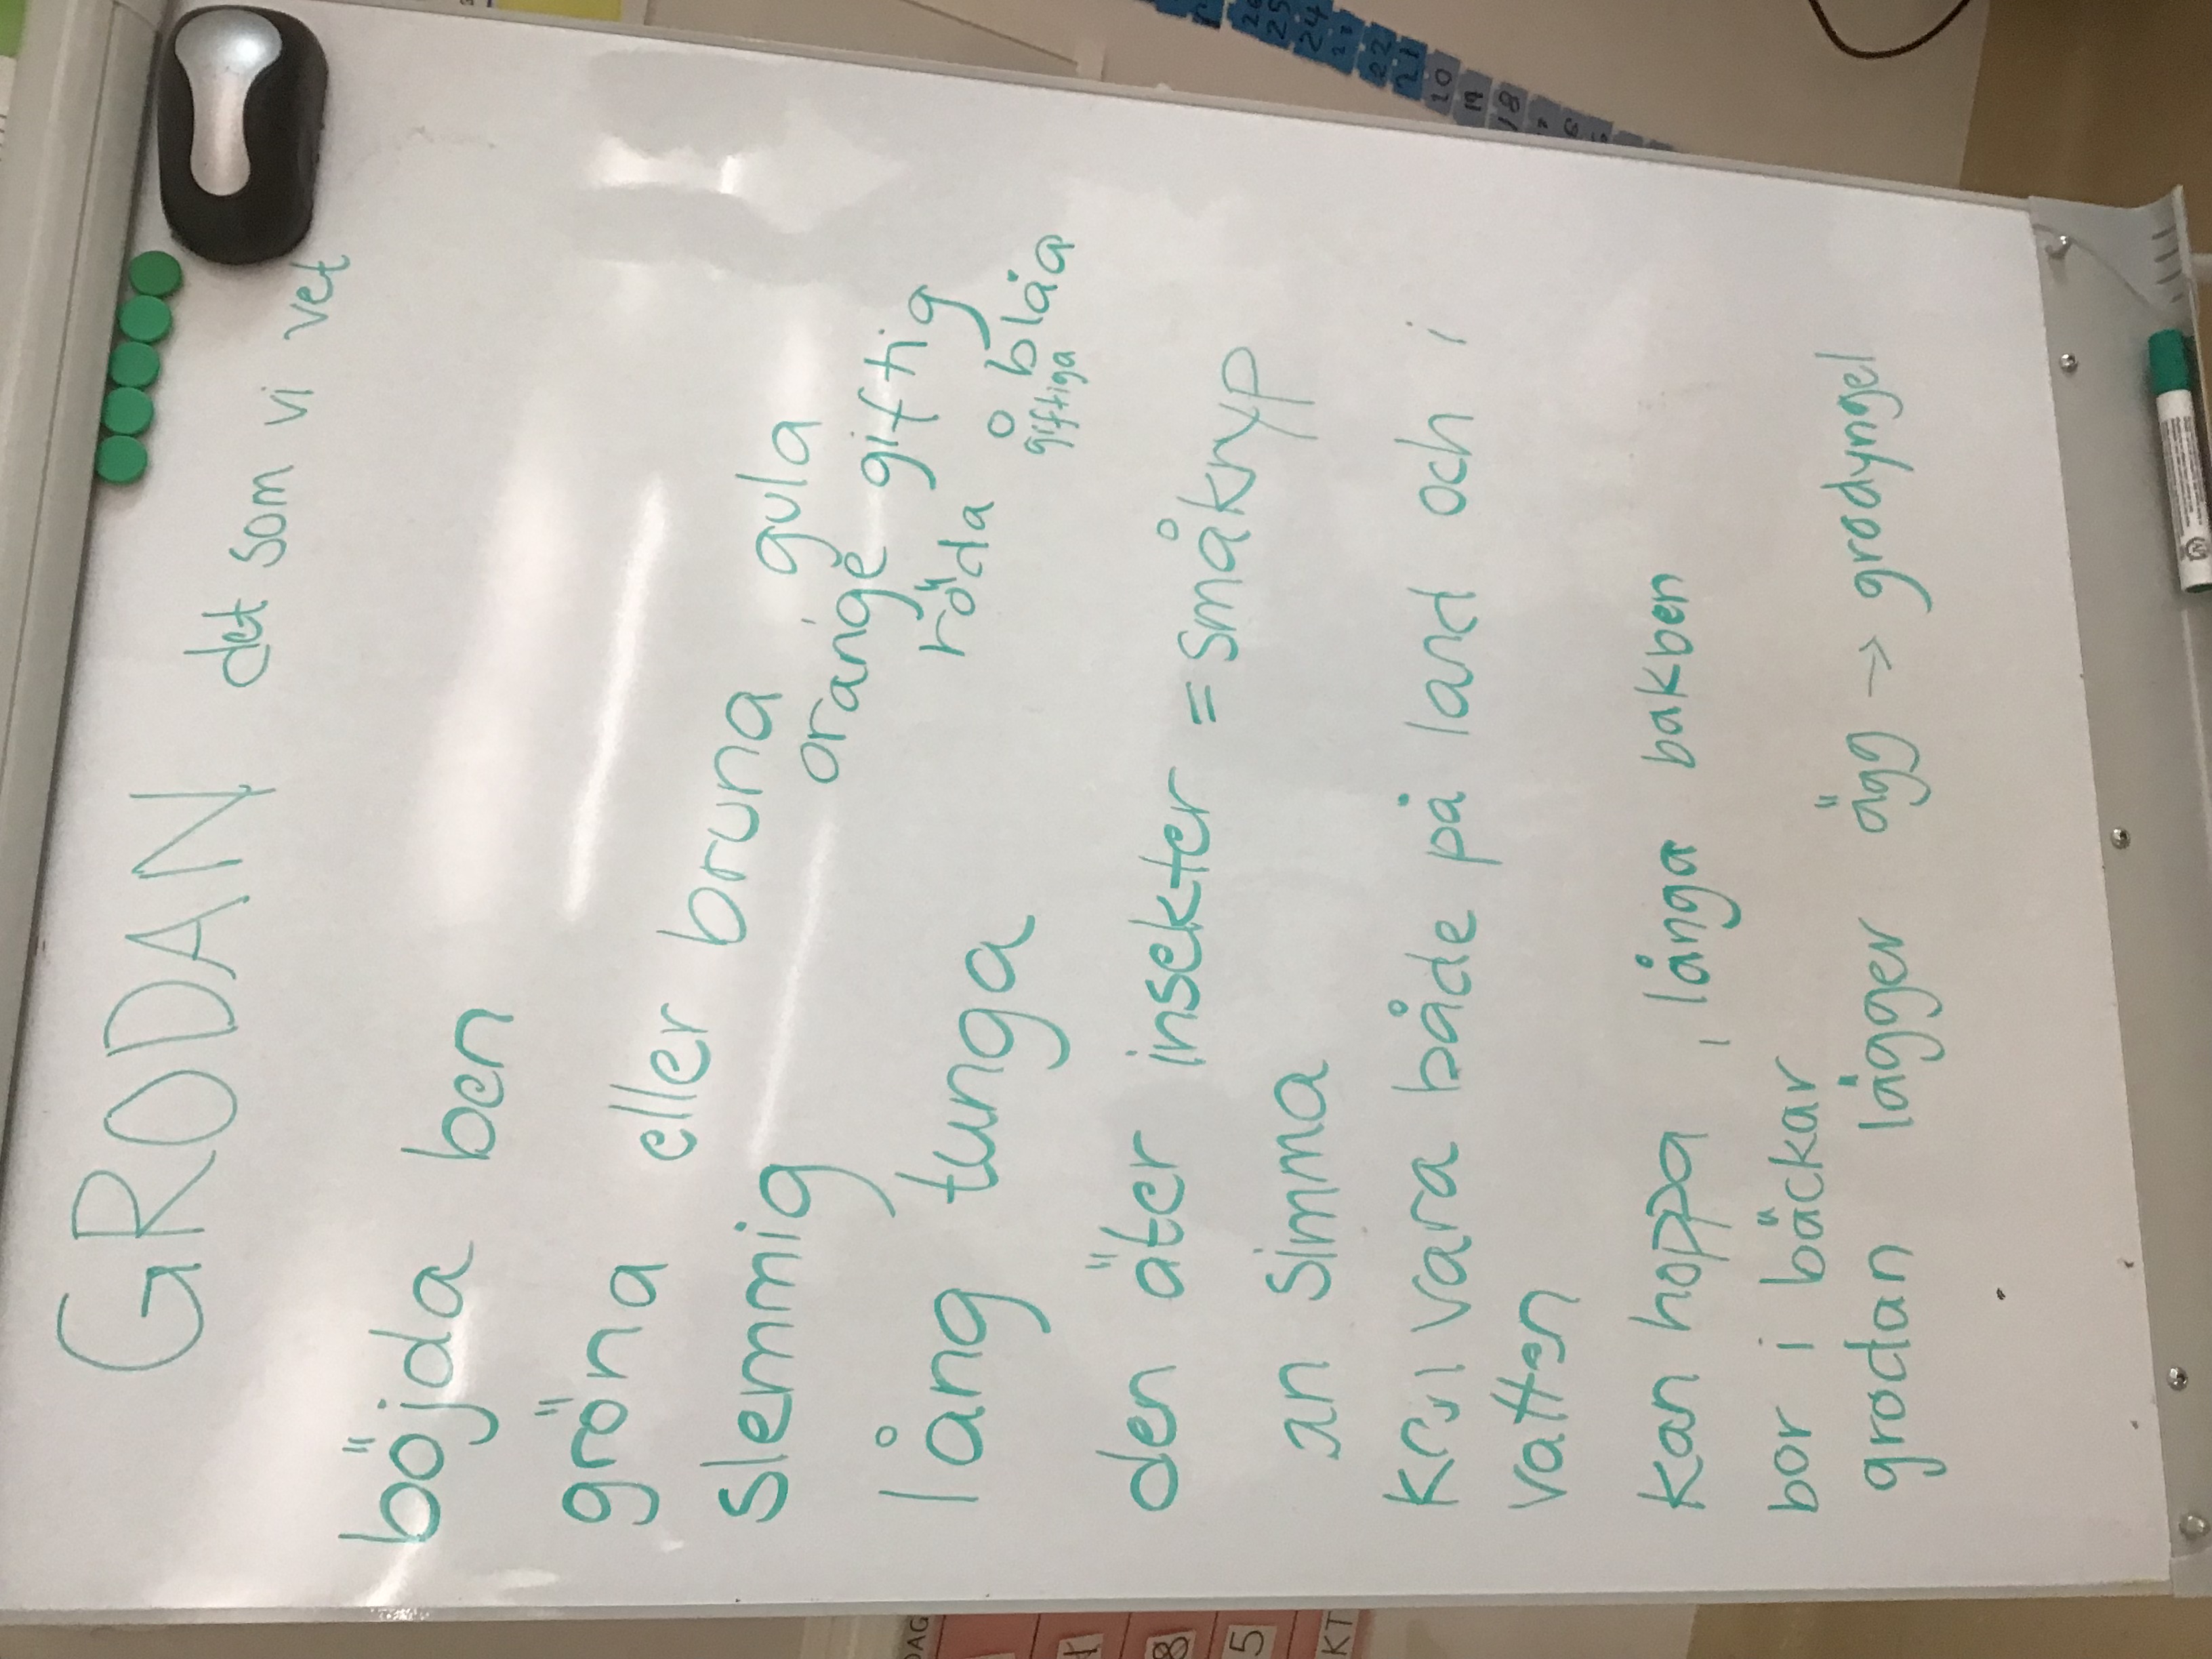 GRODAN det som vi vet
böjda ben
gröna eller bruna gula
orange giftig
röda o blåa
giftiga
slemmig
lång tunga
den äter insekter = småkryp
simma
vara både på land och i
vatten
kan hoppa, långa bakben
bor i bäckar
grodan lägger ägg -> grodyngel
26
25
24
22
21
20
19
18
8
5
KT